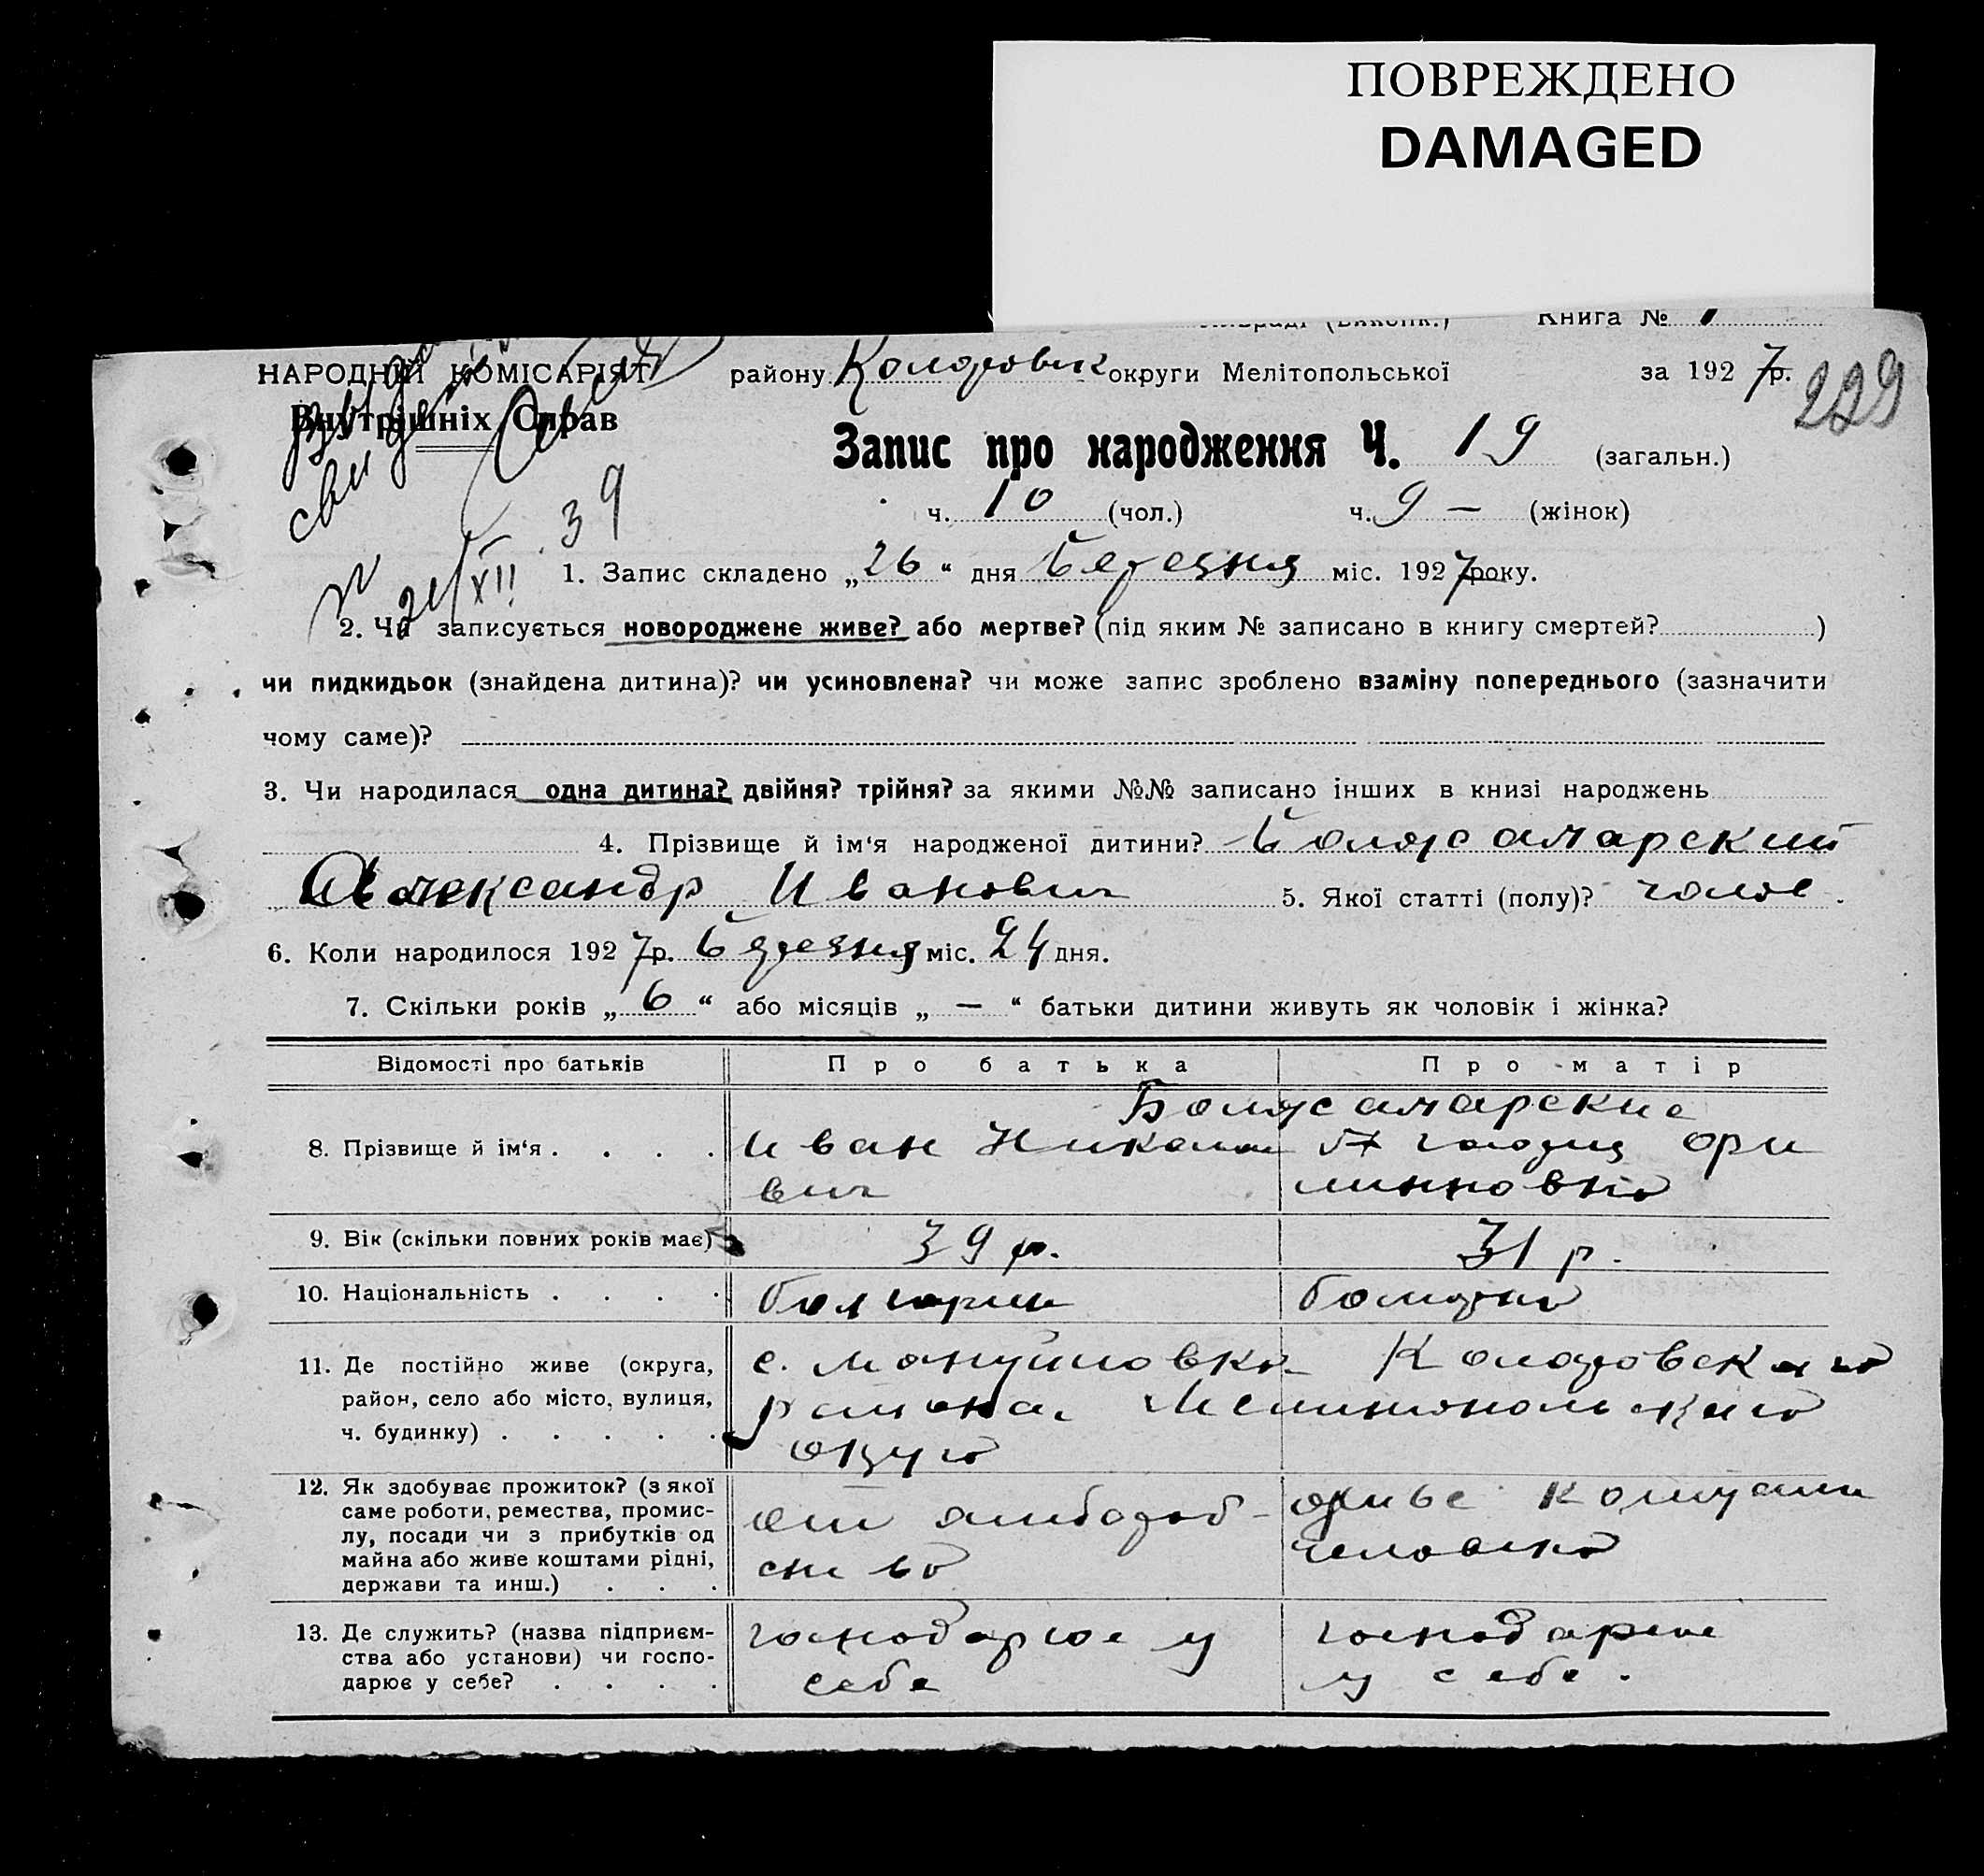 ПОВРЕЖДЕНО
DAMAGED
Книга №
НАРОДНИЙ КОМІСАРІЯТ району округи Мелітопольської за 1927 р. 229
Внутрішніх Справ
Запис про народження Ч. 19 (загальн.)
ч. 10 (чол.) ч. 9 — (жінок)
39
XII
1. Запис складено „26“ дня березня міс. 1927 року.
2. Чи записується новороджене живе? або мертве? (під яким № записано в книгу смертей? )
чи пидкидьок (знайдена дитина)? чи усиновлена? чи може запис зроблено взаміну попереднього (зазначити
чому саме)?
3. Чи народилася одна дитина? двійня? трійня? за якими №№ записано інших в книзі народжень
4. Прізвище й ім‘я народженої дитини?
Александр Иванович 5. Якої статті (полу)? чолов.
6. Коли народилося 1927 р. березня міс. 24 дня.
7. Скільки років „6“ або місяців „—“ батьки дитини живуть як чоловік і жінка?
Відомості про батьків Про батька Про матір
8. Прізвище й ім‘я . . . . Иван
вич
9. Вік (скільки повних років має) 39 р. 31 р.
10. Національність . . . . болгарин болгарка
11. Де постійно живе (округа, с. Мануйловка
район, село або місто, вулиця, района Мелитопольского
ч. будинку) . . . . . округа
12. Як здобуває прожиток? (з якої
саме роботи, ремества, промис-
лу, посади чи з прибутків од
майна або живе коштами рідні,
держави та инш.) . . .
13. Де служить? (назва підприєм- господарює у господарює
ства або установи) чи госпо- себе у себе.
дарює у себе? . . . .